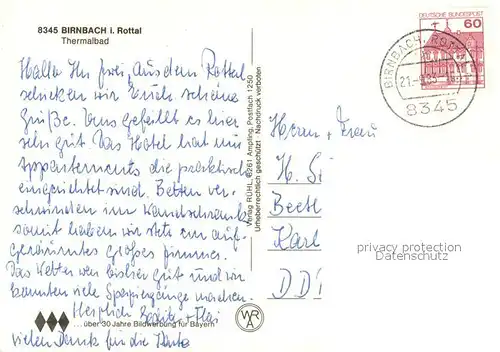 8345 BIRNBACH i. Rottal
Thermalbad
Hallo Ihr zwei, aus dem Rottal
schicken wir Euch schöne
Grüße. Uns gefällt es hier
sehr gut. Das Hotel hat nur
Appartements die praktisch
eingerichtet sind. Betten ver-
schwinden im Wandschrank
somit haben wir stets ein auf-
geräumtes großes Zimmer.
Das Wetter war bisher gut und wir
konnten viele Spaziergänge machen.
Herzlich
vielen Dank für die Karte
... über 30 Jahre Bildwerbung für Bayern
Verlag RÜHL, 8261 Ampfing, Postfach 1250
Urheberrechtlich geschützt · Nachdruck verboten
WRA
DEUTSCHE BUNDESPOST
60
BIRNBACH, ROTTAL
8345
Herrn + Frau
H. Si
Beet
Karl
DD
privacy protection
Datenschutz